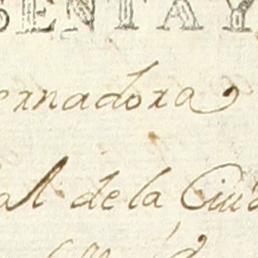 SENTAY
ernadora
al de la Ciud